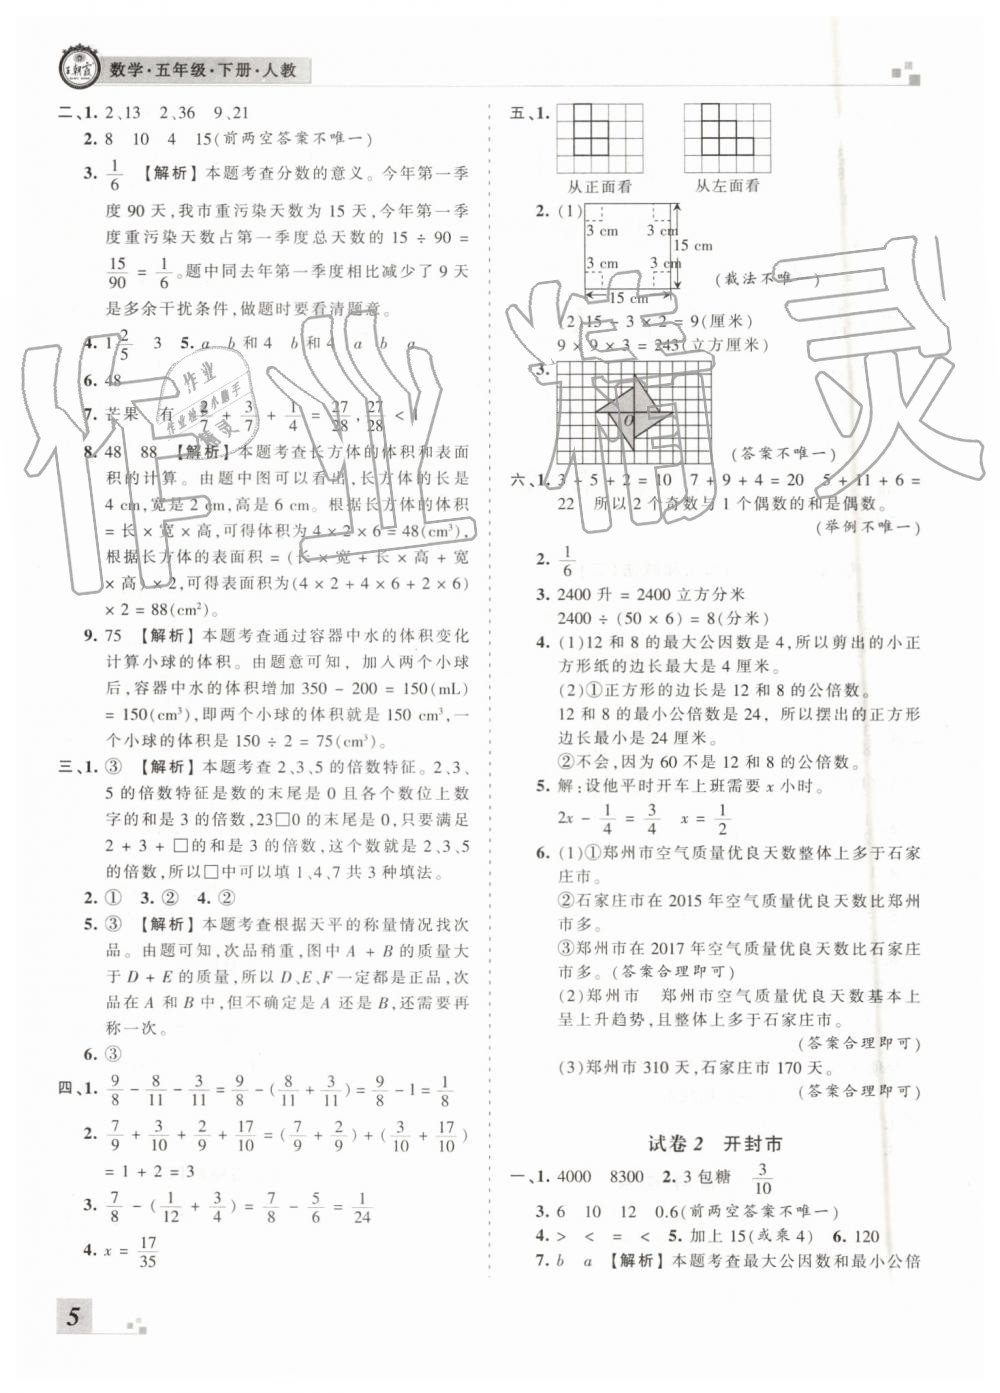 王朝霞
数学·五年级·下册·人教
二、1. 2,13　2,36　9,21
2. 8　10　4　15(前两空答案不唯一)
3. 1/6　【解析】本题考查分数的意义。今年第一季
度 90 天,我市重污染天数为 15 天,今年第一季
度重污染天数占第一季度总天数的 15 ÷ 90 =
15/90 = 1/6。题中同去年第一季度相比减少了 9 天
是多余干扰条件,做题时要看清题意。
4. 1 2/5　3　5. a　b 和 4　b 和 4　b　a
6. 48
7. 芒果　有　2/7 + 3/7 + 1/4 = 27/28, 27/28 < 1
8. 48　88　【解析】本题考查长方体的体积和表面
积的计算。由题中图可以看出,长方体的长是
4 cm,宽是 2 cm,高是 6 cm。根据长方体的体积
= 长 × 宽 × 高,可得体积为 4 × 2 × 6 = 48(cm³),
根据长方体的表面积 = (长 × 宽 + 长 × 高 + 宽
× 高) × 2,可得表面积为(4 × 2 + 4 × 6 + 2 × 6)
× 2 = 88(cm²)。
9. 75　【解析】本题考查通过容器中水的体积变化
计算小球的体积。由题意可知,加入两个小球
后,容器中水的体积增加 350 - 200 = 150(mL)
= 150(cm³),即两个小球的体积就是 150 cm³,一
个小球的体积是 150 ÷ 2 = 75(cm³)。
三、1. ③　【解析】本题考查 2、3、5 的倍数特征。2、3、
5 的倍数特征是数的末尾是 0 且各个数位上数
字的和是 3 的倍数,23□0 的末尾是 0,只要满足
2 + 3 + □的和是 3 的倍数,这个数就是 2、3、5
的倍数,所以□中可以填 1、4、7 共 3 种填法。
2. ①　3. ②　4. ②
5. ③　【解析】本题考查根据天平的称量情况找次
品。由题可知,次品稍重,图中 A + B 的质量大
于 D + E 的质量,所以 D、E、F 一定都是正品,次
品在 A 和 B 中,但不确定是 A 还是 B,还需要再
称一次。
6. ③
四、1. 9/8 - 8/11 - 3/11 = 9/8 - (8/11 + 3/11) = 9/8 - 1 = 1/8
2. 7/9 + 3/10 + 2/9 + 17/10 = (7/9 + 2/9) + (3/10 + 17/10)
= 1 + 2 = 3
3. 7/8 - (1/12 + 3/4) = 7/8 - 5/6 = 1/24
4. x = 17/35
5
五、1.
从正面看　从左面看
2. (1)
3 cm　3 cm
15 cm
3 cm　3 cm
15 cm
(裁法不唯一)
(2)15 - 3 × 2 = 9(厘米)
9 × 9 × 3 = 243(立方厘米)
3.
O
(答案不唯一)
六、1. 3 + 5 + 2 = 10　7 + 9 + 4 = 20　5 + 11 + 6 =
22　所以 2 个奇数与 1 个偶数的和是偶数。
(举例不唯一)
2. 1/6
3. 2400 升 = 2400 立方分米
2400 ÷ (50 × 6) = 8(分米)
4. (1)12 和 8 的最大公因数是 4,所以剪出的小正
方形纸的边长最大是 4 厘米。
(2)①正方形的边长是 12 和 8 的公倍数。
12 和 8 的最小公倍数是 24,所以摆出的正方形
边长最小是 24 厘米。
②不会,因为 60 不是 12 和 8 的公倍数。
5. 解:设他平时开车上班需要 x 小时。
2x - 1/4 = 3/4　x = 1/2
6. (1)①郑州市空气质量优良天数整体上多于石家
庄市。
②石家庄市在 2015 年空气质量优良天数比郑州
市多。
③郑州市在 2017 年空气质量优良天数比石家庄
市多。(答案合理即可)
(2)郑州市　郑州市空气质量优良天数基本上
呈上升趋势,且整体上多于石家庄市。
(答案合理即可)
(3)郑州市 310 天,石家庄市 170 天。
(答案合理即可)
试卷 2　开封市
一、1. 4000　8300　2. 3 包糖　3/10
3. 6　10　12　0.6(前两空答案不唯一)
4. >　<　=　<　5. 加上 15(或乘 4)　6. 120
7. b　a　【解析】本题考查最大公因数和最小公倍
作业精灵
作业
作业检查小助手
精灵